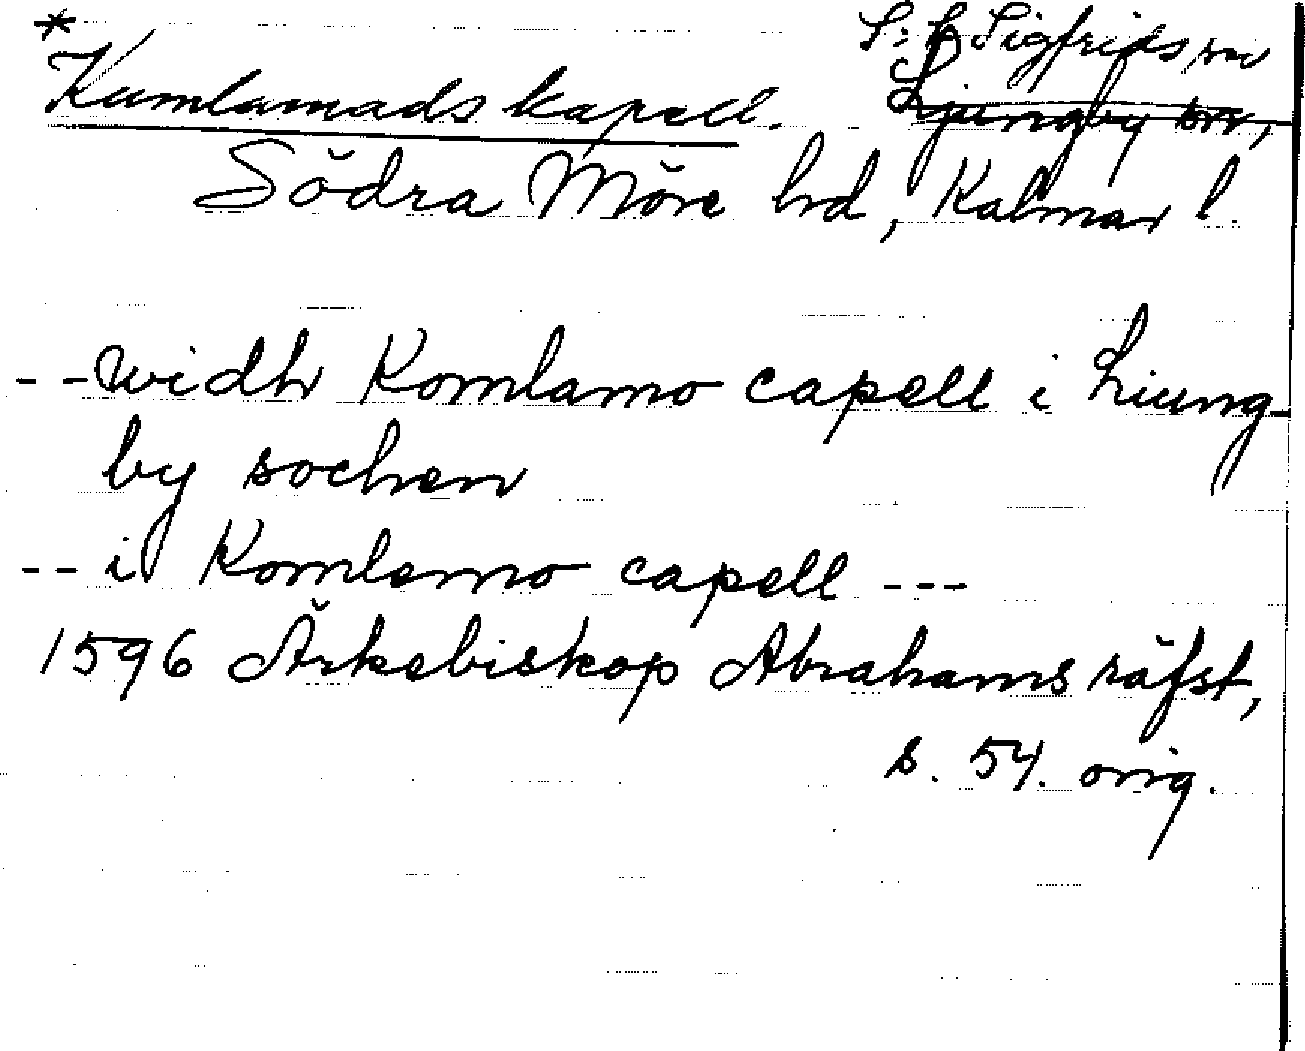 * S:t Sigfrids sn
Kumlamads kapell. Ljungby sn,
Södra Möre hrd, Kalmar l.
- - widhr Komlamo capell i Liung-
by sochen
- - i Komlemo capell - - -
1596 Ärkebiskop Abrahams räfst,
s. 54. orig.